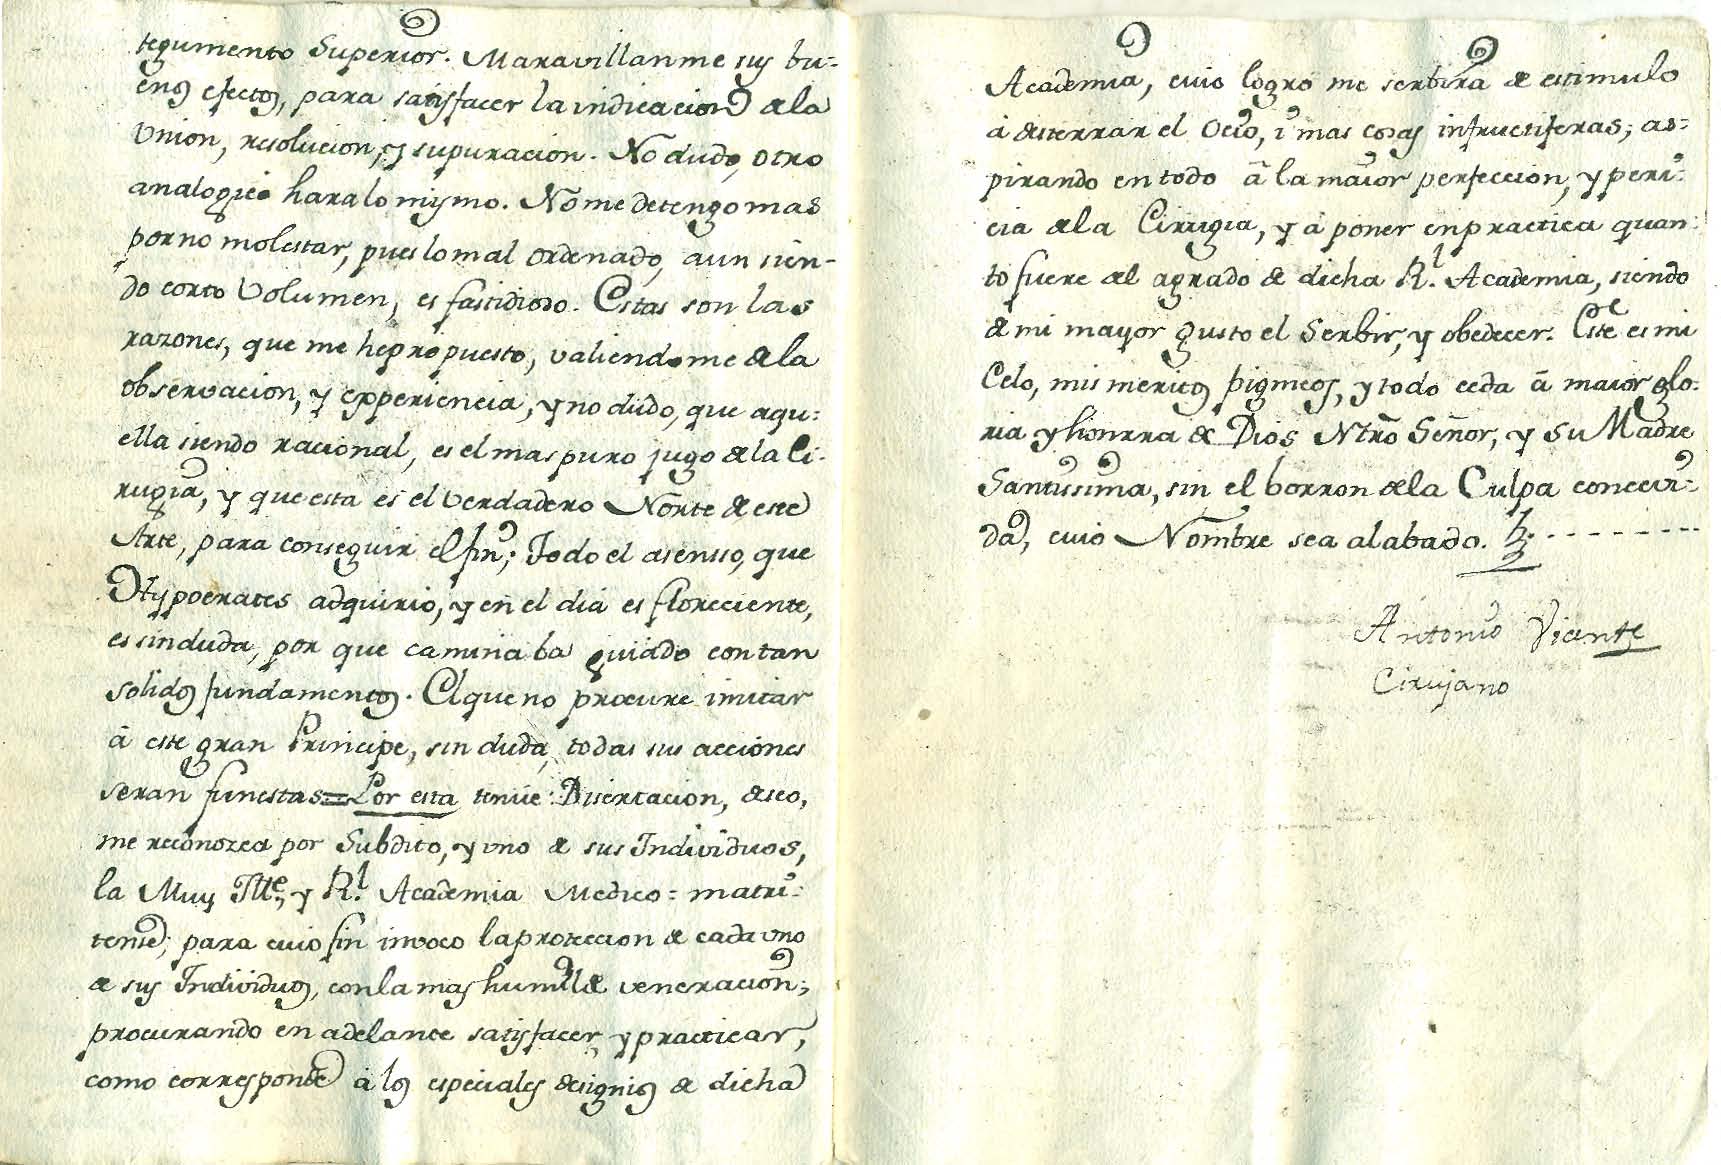 tegumento Superior. Maravillanme sus bu=
enos efectos, para satisfacer la indicacion de la
Union, resolucion, y supuracion. No dudo, otro
analogico hara lo mismo. No me detengo mas
por no molestar, pues lo mal ordenado, aun sien-
do corto Volumen, es fastidioso. Estas son las
razones, que me he propuesto, valiendome de la
observacion, y experiencia, y no dudo, que aqu=
ella siendo racional, es el mas puro jugo de la Ci-
rugia, y que esta es el verdadero Norte de este
Arte, para conseguir el fin; Todo el asenso, que
Hypocrates adquirio, y en el dia es floreciente,
es sin duda, por que caminaba guiado con tan
solidos fundamentos. El que no procure imitar
â este gran Principe, sin duda, todas sus acciones
seran funestas = Por esta tenue Disertacion, deseo,
me reconozca por Subdito, y uno de sus Individuos,
la Muy Ille, y Rl. Academia Medico=matri=
tense; para cuio fin invoco la proteccion de cada uno
de sus Individuos, con la mas humilde veneracion;
procurando en adelante satisfacer, y practicar,
como corresponde â los especiales designios de dicha
Academia, cuio logro me serbira de estimulo
â desterrar el Ocio, i mas cosas infructiferas; as=
pirando en todo â la maior perfeccion, y peri=
cia de la Cirugia, y â poner en practica quan-
to fuere del agrado de dicha Rl. Academia, siendo
de mi mayor gusto el Serbir, y obedecer. Este es mi
Celo, mis meritos pigmeos, y todo ceda â maior glo-
ria y honrra de Dios Ntro Señor, y Su Madre
Santissima, sin el borron de la Culpa concevi=
da, cuio Nombre sea alabado.
Antonio Vicente
Cirujano